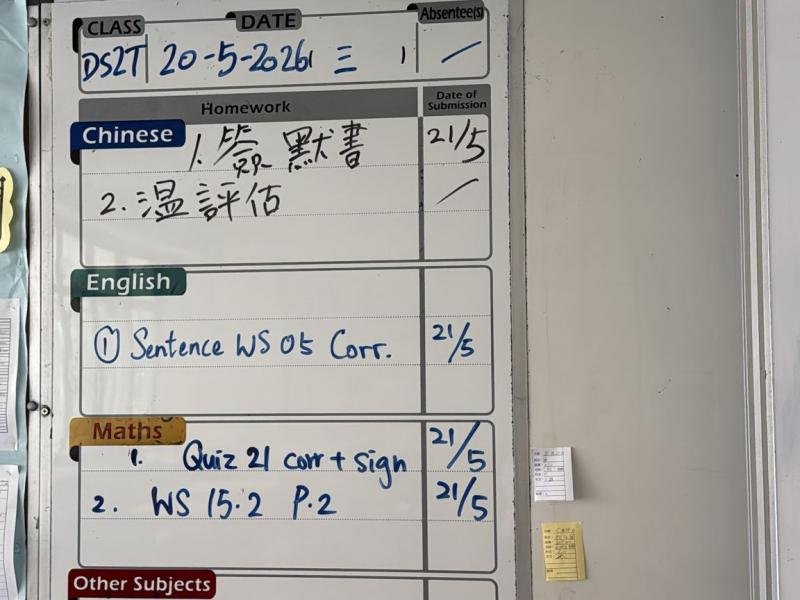 CLASS DATE Absentee(s)
DS2T 20-5-2026 三
Homework Date of Submission
Chinese
1. 簽默書 21/5
2. 溫評估
English
① Sentence WS 05 Corr. 21/5
Maths
1. Quiz 21 corr + sign 21/5
2. WS 15.2 P.2 21/5
Other Subjects